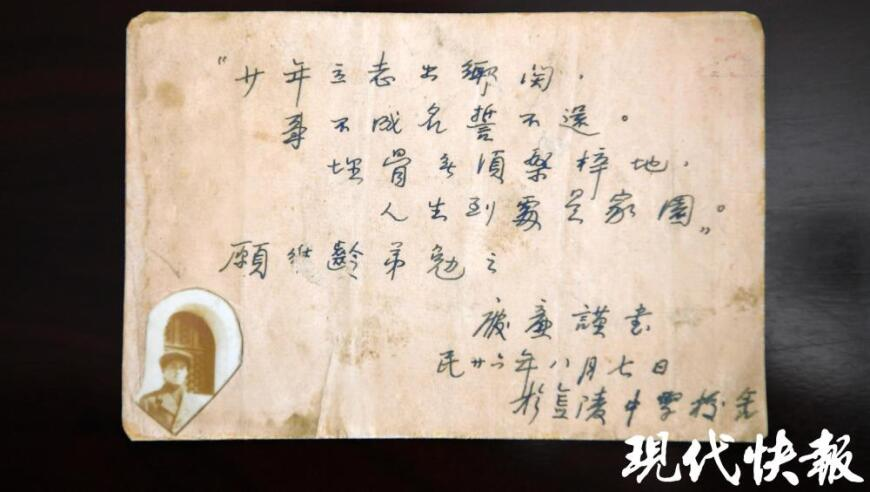 "廿年立志出鄉関，
事不成名誓不還。
埋骨無須桑梓地，
人生到處是家園。"
願齡弟勉之
廉謹書
民廿六年八月七日
於陵中學校舍
現代快報